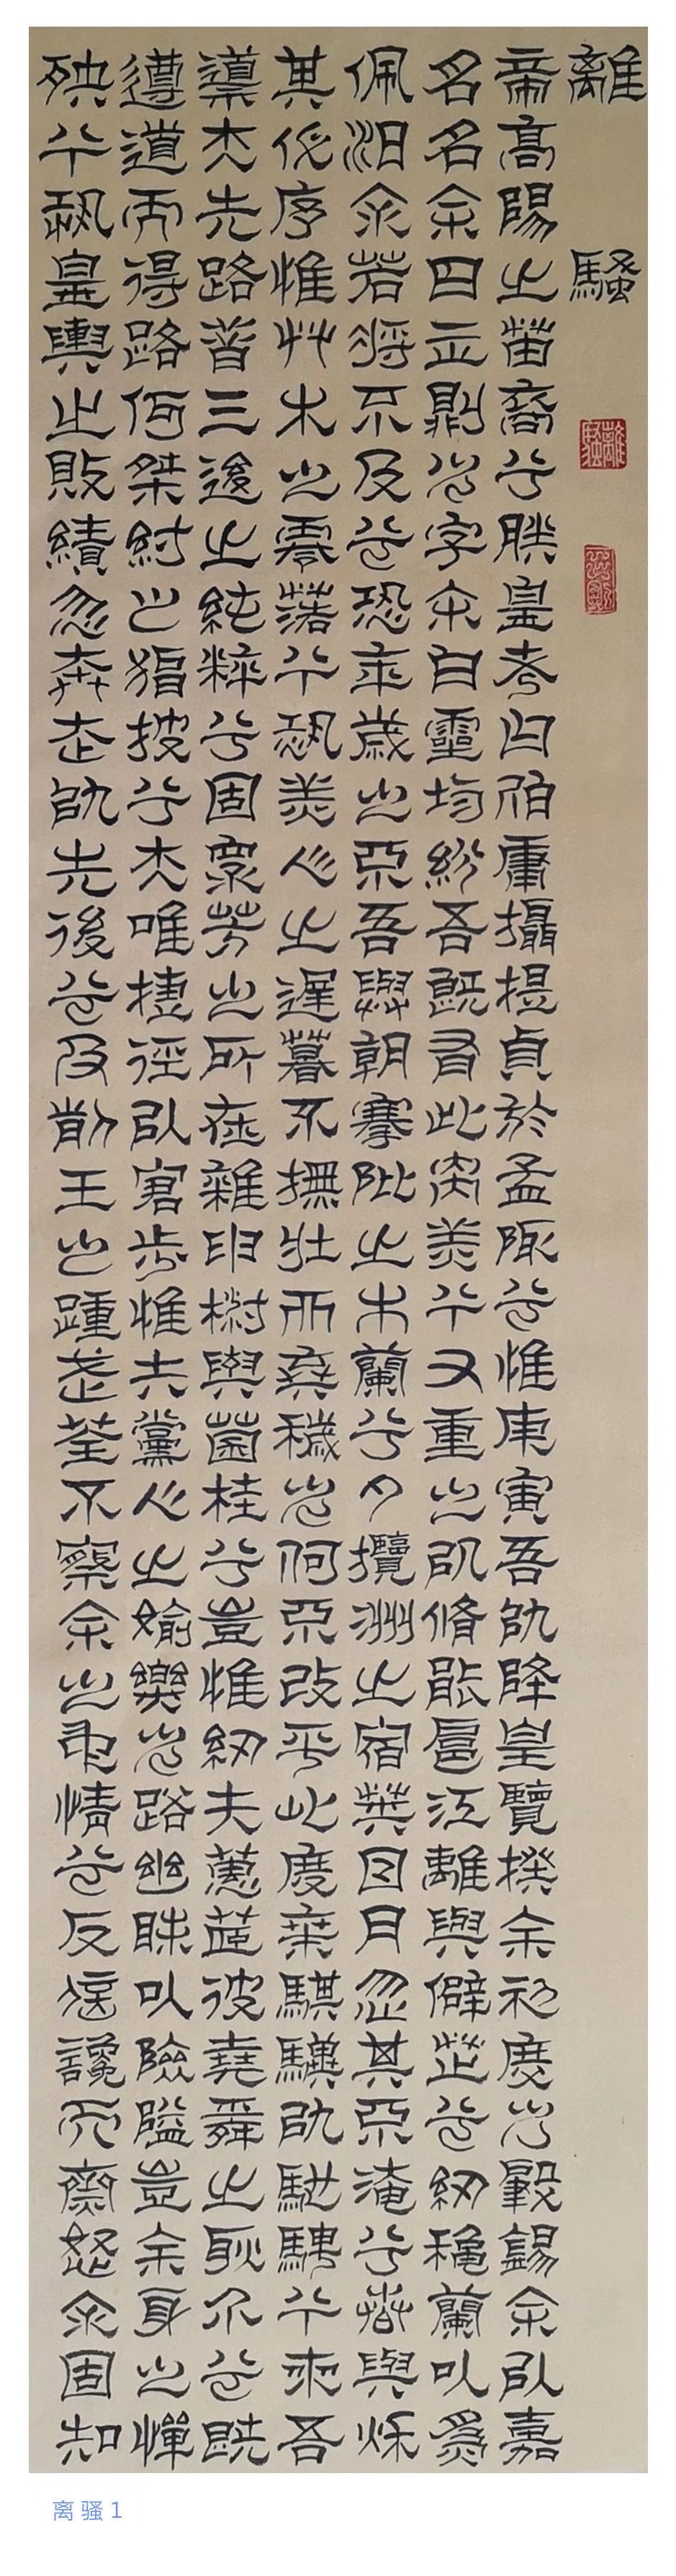 離騷
離騷
帝高陽之苗裔兮朕皇考曰伯庸攝提貞於孟陬兮惟庚寅吾以降皇覽揆余初度兮肇錫余以嘉
名名余曰正則兮字余曰靈均紛吾既有此内美兮又重之以脩能扈江離與僻芷兮紉穐蘭以爲
佩汨余若將不及兮恐年歲之不吾與朝搴阰之木蘭兮夕攬洲之宿莽日月忽其不淹兮春與秋
其代序惟艸木之零落兮恐美人之遲暮不撫壯而棄穢兮何不改乎此度乘騏驥以馳騁兮來吾
導夫先路昔三後之純粹兮固衆芳之所在雜申椒與菌桂兮豈惟紉夫蕙茝彼堯舜之耿介兮既
遵道而得路何桀紂之猖披兮夫唯捷徑以窘步惟夫黨人之媮樂兮路幽昧以險隘豈余身之憚
殃兮恐皇輿之敗績忽奔走以先後兮及前王之踵武荃不察余之中情兮反信讒而齌怒余固知
离骚1